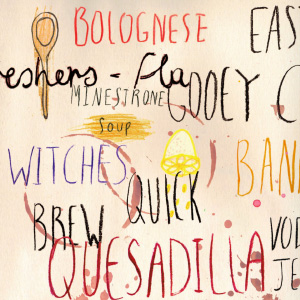 BOLOGNESE
EAS
eshers - Fla
MINESTRONE
GOOEY C
SOUP
WITCHES
BAN
QUICK
BREW
VOD
QUESADILLA
JE